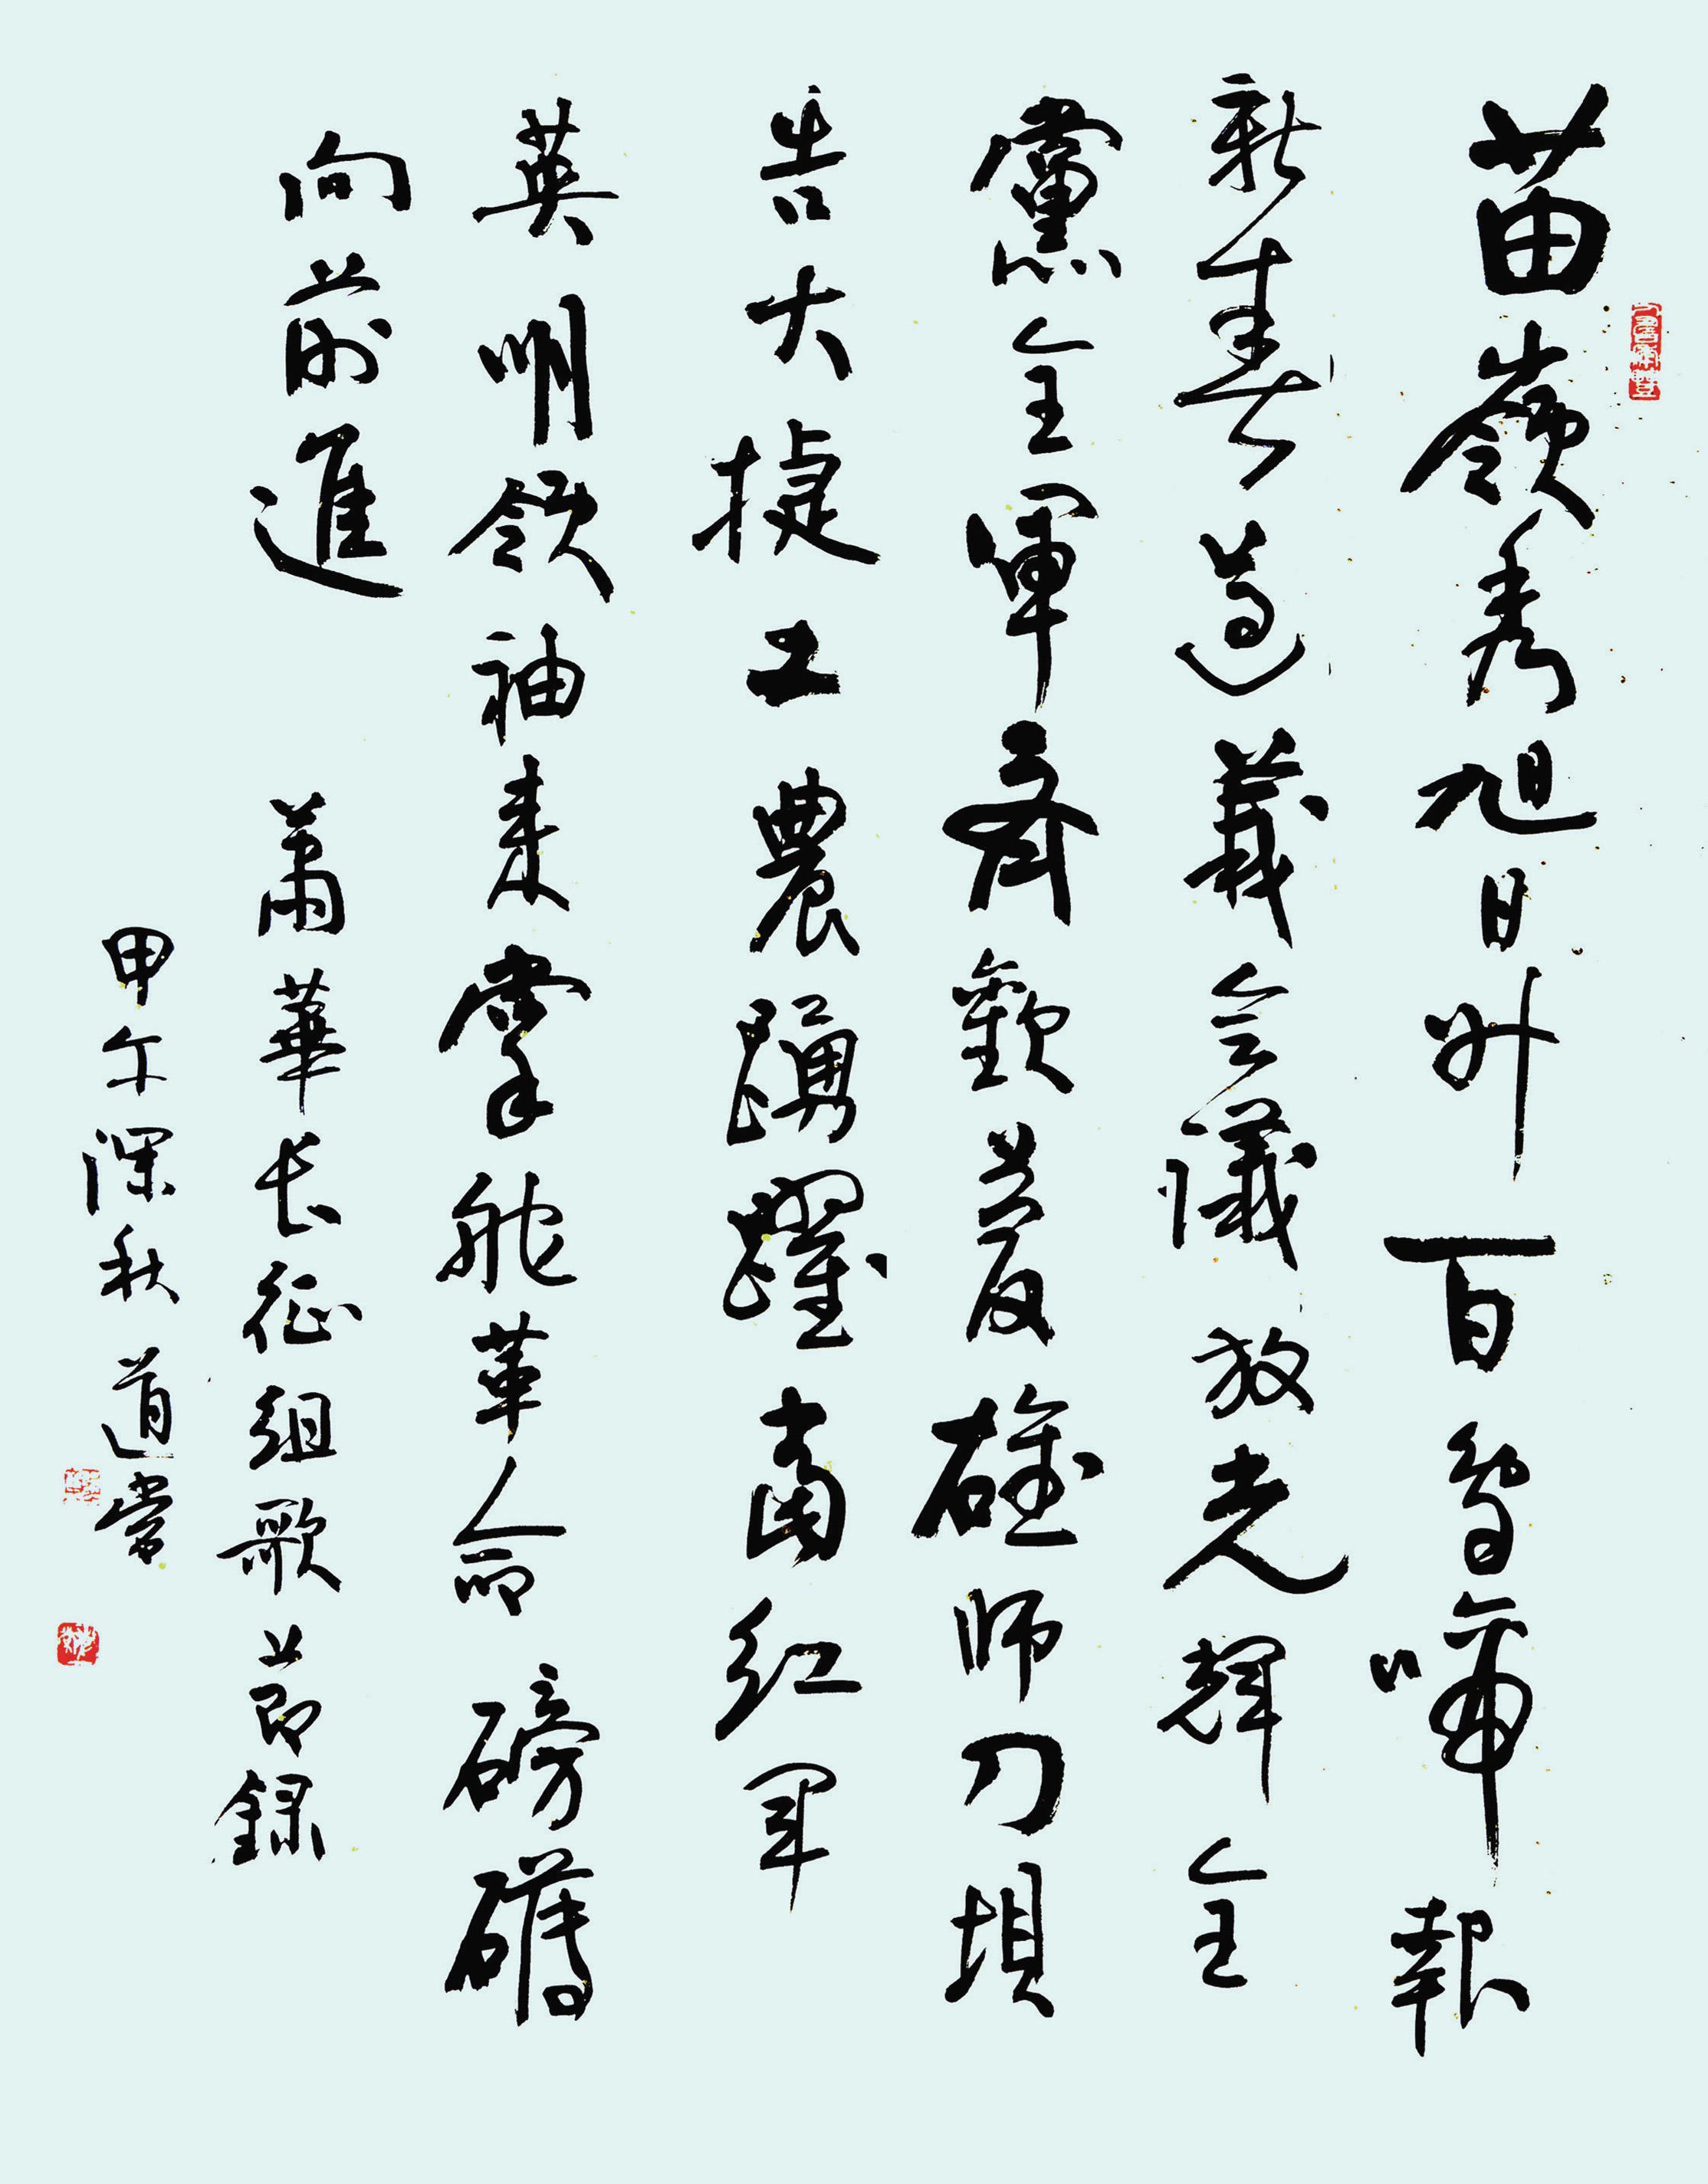 苗嶺秀旭日升百鳥啼報
新春遵義会議放光輝全
黨全軍齐歡慶雄師刀垻
告大捷工農踴躍當红军
英明领袖来掌舵革命磅礴
向前進 蕭華长征组歌節録
甲午深秋 道常